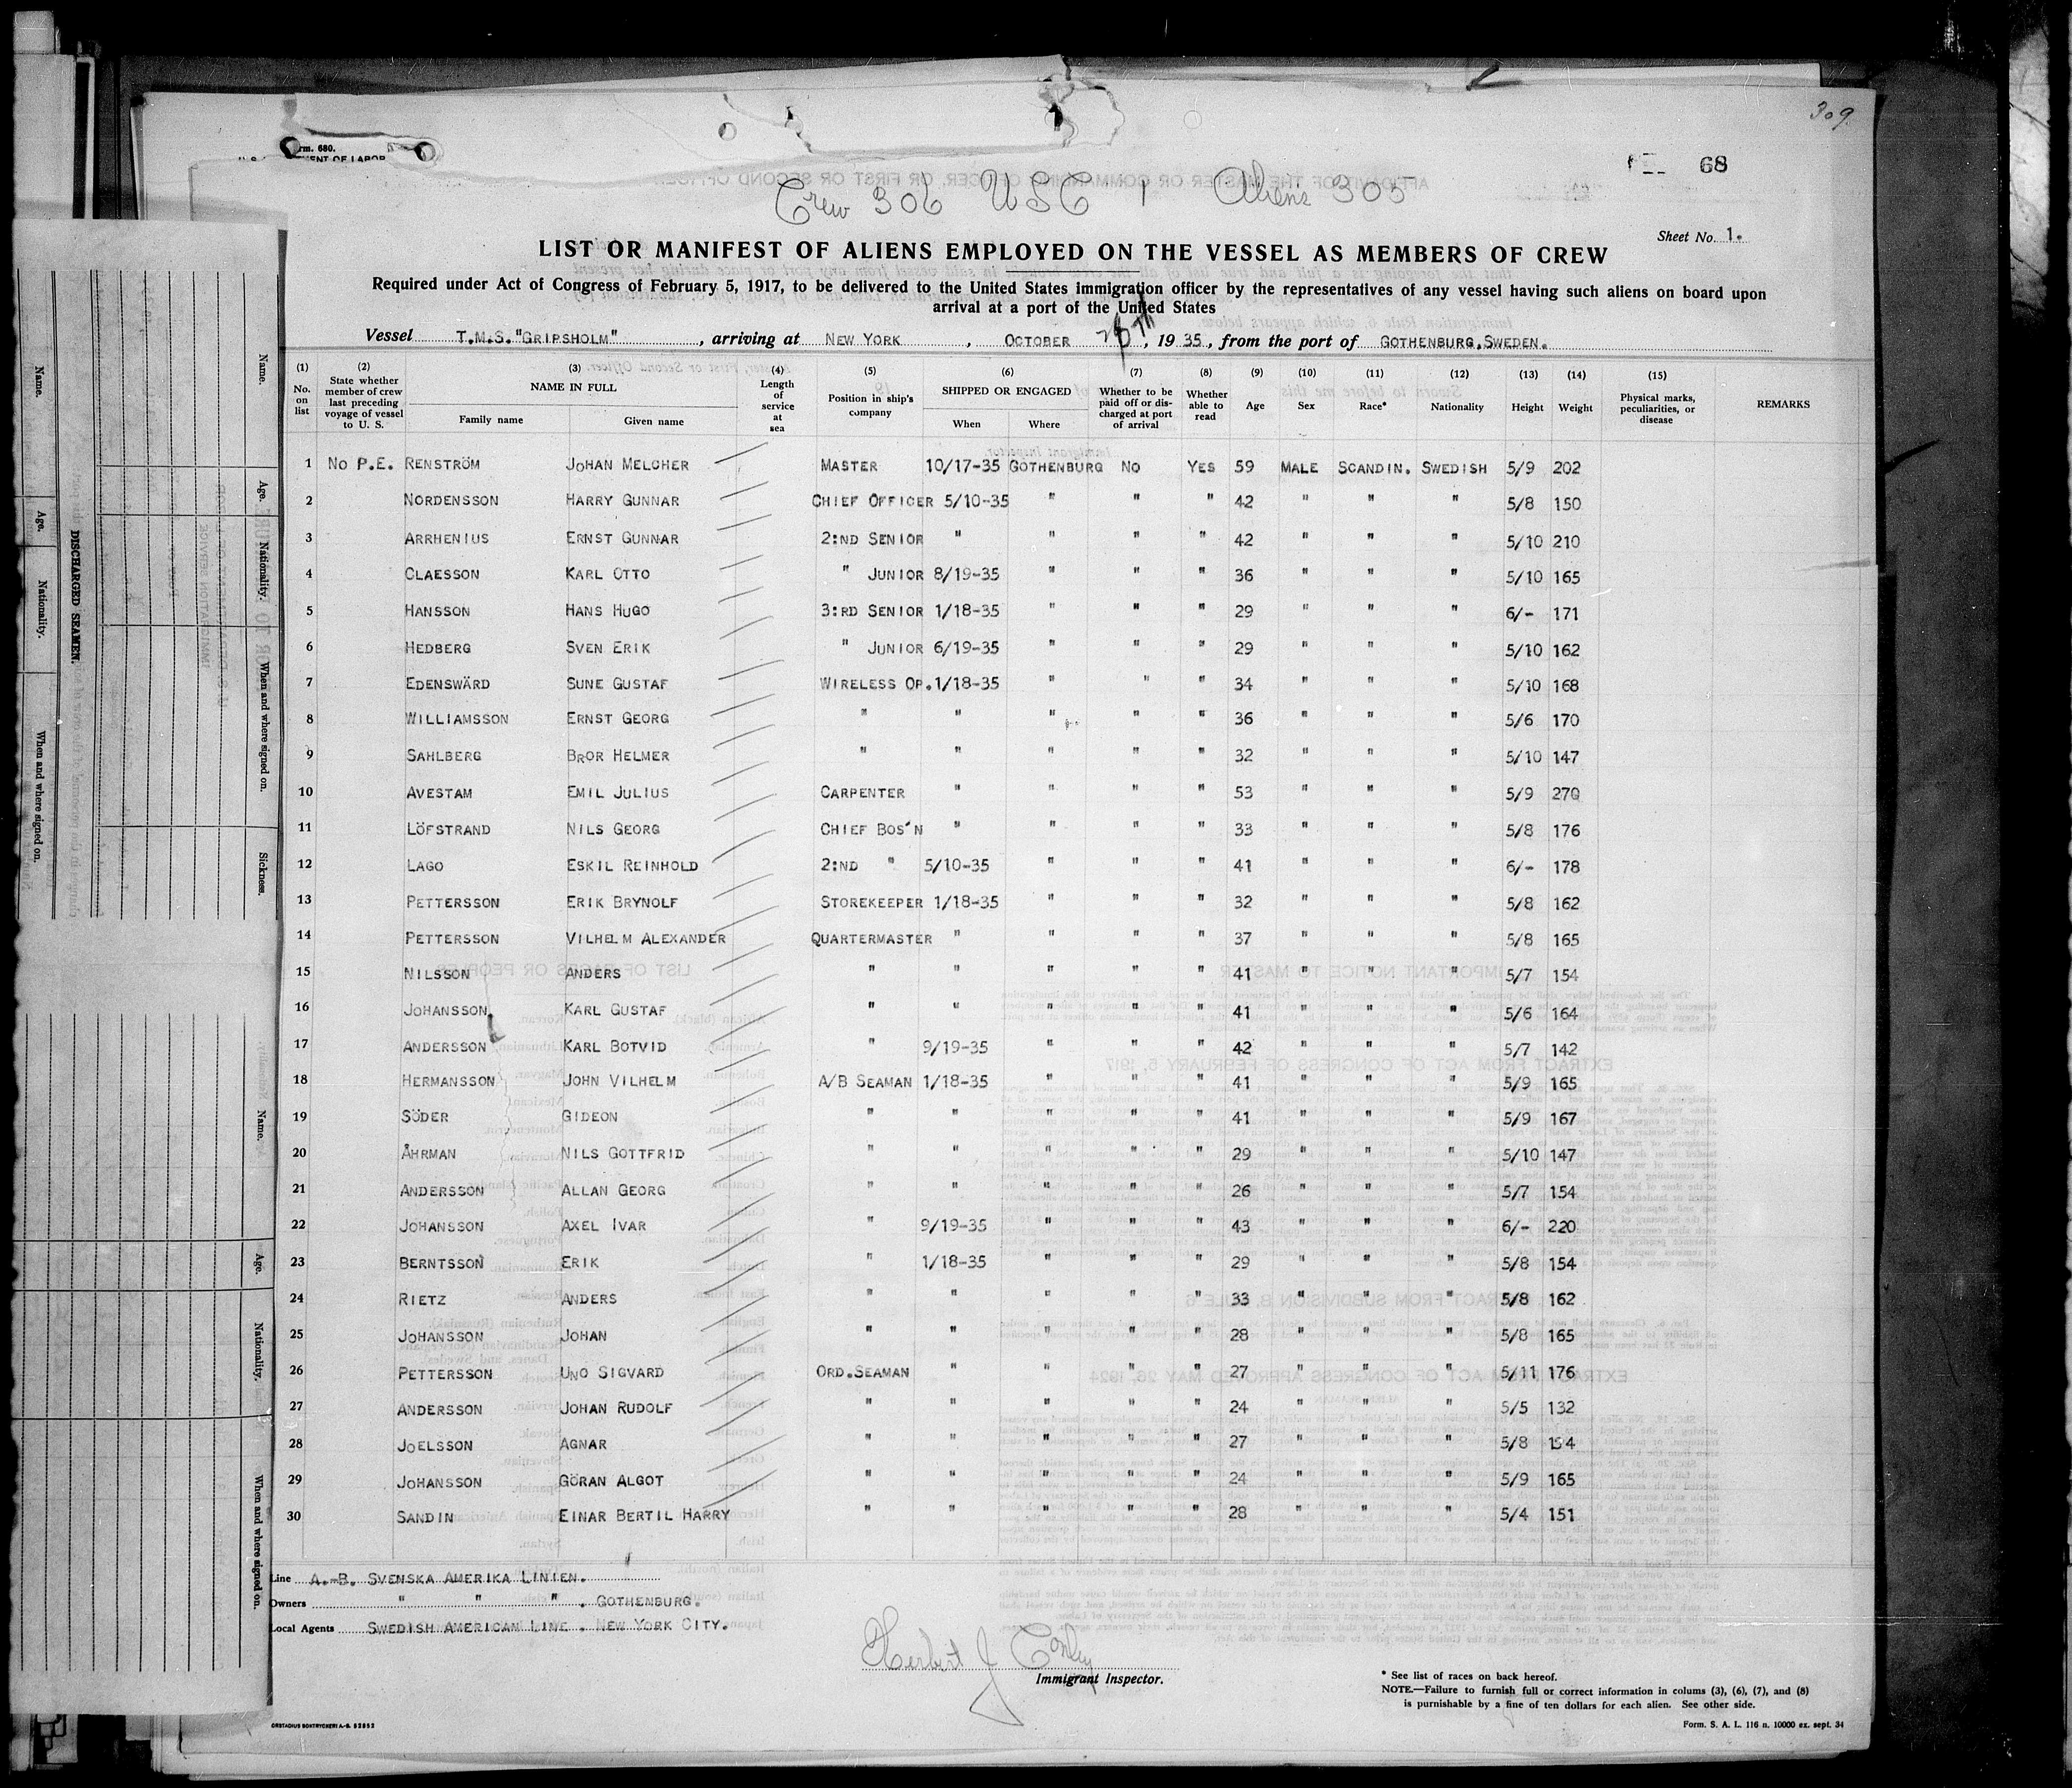 309.
Form. 680.
U. S. DEPARTMENT OF LABOR
68
Crew 306 USC 1 Aliens 305
Sheet No. 1.
LIST OR MANIFEST OF ALIENS EMPLOYED ON THE VESSEL AS MEMBERS OF CREW
Required under Act of Congress of February 5, 1917, to be delivered to the United States immigration officer by the representatives of any vessel having such aliens on board upon
arrival at a port of the United States
Vessel T.M.S. "GRIPSHOLM", arriving at NEW YORK, OCTOBER 26TH, 1935, from the port of GOTHENBURG, SWEDEN.
(1) (2) (3) (4) (5) (6) (7) (8) (9) (10) (11) (12) (13) (14) (15)
No. on list | State whether member of crew last preceding voyage of vessel to U. S. | NAME IN FULL | Length of service at sea | Position in ship's company | SHIPPED OR ENGAGED | Whether to be paid off or discharged at port of arrival | Whether able to read | Age | Sex | Race* | Nationality | Height | Weight | Physical marks, peculiarities, or disease | REMARKS
Family name | Given name | When | Where
1 NO P.E. RENSTRÖM JOHAN MELCHER MASTER 10/17-35 GOTHENBURG NO YES 59 MALE SCANDIN. SWEDISH 5/9 202
2 NORDENSSON HARRY GUNNAR CHIEF OFFICER 5/10-35 " " " 42 " " " 5/8 150
3 ARRHENIUS ERNST GUNNAR 2:ND SENIOR " " " " 42 " " " 5/10 210
4 CLAESSON KARL OTTO " JUNIOR 8/19-35 " " " 36 " " " 5/10 165
5 HANSSON HANS HUGO 3:RD SENIOR 1/18-35 " " " 29 " " " 6/- 171
6 HEDBERG SVEN ERIK " JUNIOR 6/19-35 " " " 29 " " " 5/10 162
7 EDENSWÄRD SUNE GUSTAF WIRELESS OP. 1/18-35 " " " 34 " " " 5/10 168
8 WILLIAMSSON ERNST GEORG " " " " " 36 " " " 5/6 170
9 SAHLBERG BROR HELMER " " " " " 32 " " " 5/10 147
10 AVESTAM EMIL JULIUS CARPENTER " " " " 53 " " " 5/9 270
11 LÖFSTRAND NILS GEORG CHIEF BOS'N " " " " 33 " " " 5/8 176
12 LAGO ESKIL REINHOLD 2:ND " 5/10-35 " " " 41 " " " 6/- 178
13 PETTERSSON ERIK BRYNOLF STOREKEEPER 1/18-35 " " " 32 " " " 5/8 162
14 PETTERSSON VILHELM ALEXANDER QUARTERMASTER " " " " 37 " " " 5/8 165
15 NILSSON ANDERS " " " " " 41 " " " 5/7 154
16 JOHANSSON KARL GUSTAF " " " " " 41 " " " 5/6 164
17 ANDERSSON KARL BOTVID " 9/19-35 " " " 42 " " " 5/7 142
18 HERMANSSON JOHN VILHELM A/B SEAMAN 1/18-35 " " " 41 " " " 5/9 165
19 SÖDER GIDEON " " " " " 41 " " " 5/9 167
20 ÅHRMAN NILS GOTTFRID " " " " " 29 " " " 5/10 147
21 ANDERSSON ALLAN GEORG " " " " " 26 " " " 5/7 154
22 JOHANSSON AXEL IVAR " 9/19-35 " " " 43 " " " 6/- 220
23 BERNTSSON ERIK " 1/18-35 " " " 29 " " " 5/8 154
24 RIETZ ANDERS " " " " " 33 " " " 5/8 162
25 JOHANSSON JOHAN " " " " " 28 " " " 5/8 165
26 PETTERSSON UNO SIGVARD ORD.SEAMAN " " " " 27 " " " 5/11 176
27 ANDERSSON JOHAN RUDOLF " " " " " 24 " " " 5/5 132
28 JOELSSON AGNAR " " " " " 27 " " " 5/8 154
29 JOHANSSON GÖRAN ALGOT " " " " " 24 " " " 5/9 165
30 SANDIN EINAR BERTIL HARRY " " " " " 28 " " " 5/4 151
Line A.-B. SVENSKA AMERIKA LINIEN.
Owners " " " . GOTHENBURG.
Local Agents SWEDISH AMERICAN LINE. NEW YORK CITY.
Herbert J Conley
Immigrant Inspector.
* See list of races on back hereof.
NOTE.—Failure to furnish full or correct information in colums (3), (6), (7), and (8)
is purnishable by a fine of ten dollars for each alien. See other side.
ORSTADIUS BOKTRYCKERI A.-B. 52852
Form. S. A. L. 116 n. 10000 ex. sept. 34
DISCHARGED SEAMEN.
Name. Age. Nationality. When and where signed on.
Name. Age. Nationality. When and where signed on. Sickness.
Name. Age. Nationality. When and where signed on.